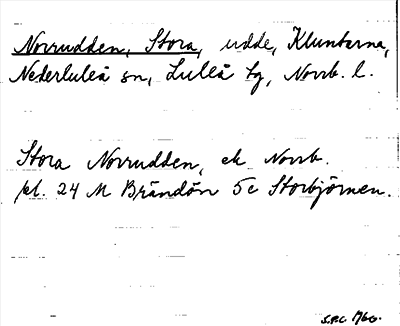 Norrudden, Stora, udde, Kluntarna,
Nederluleå sn, Luleå tg, Norrb. l.
Stora Norrudden, ek Norrb.
bl. 24 M Brändön 5c Storbjörnen.
S.P.C. 1966.